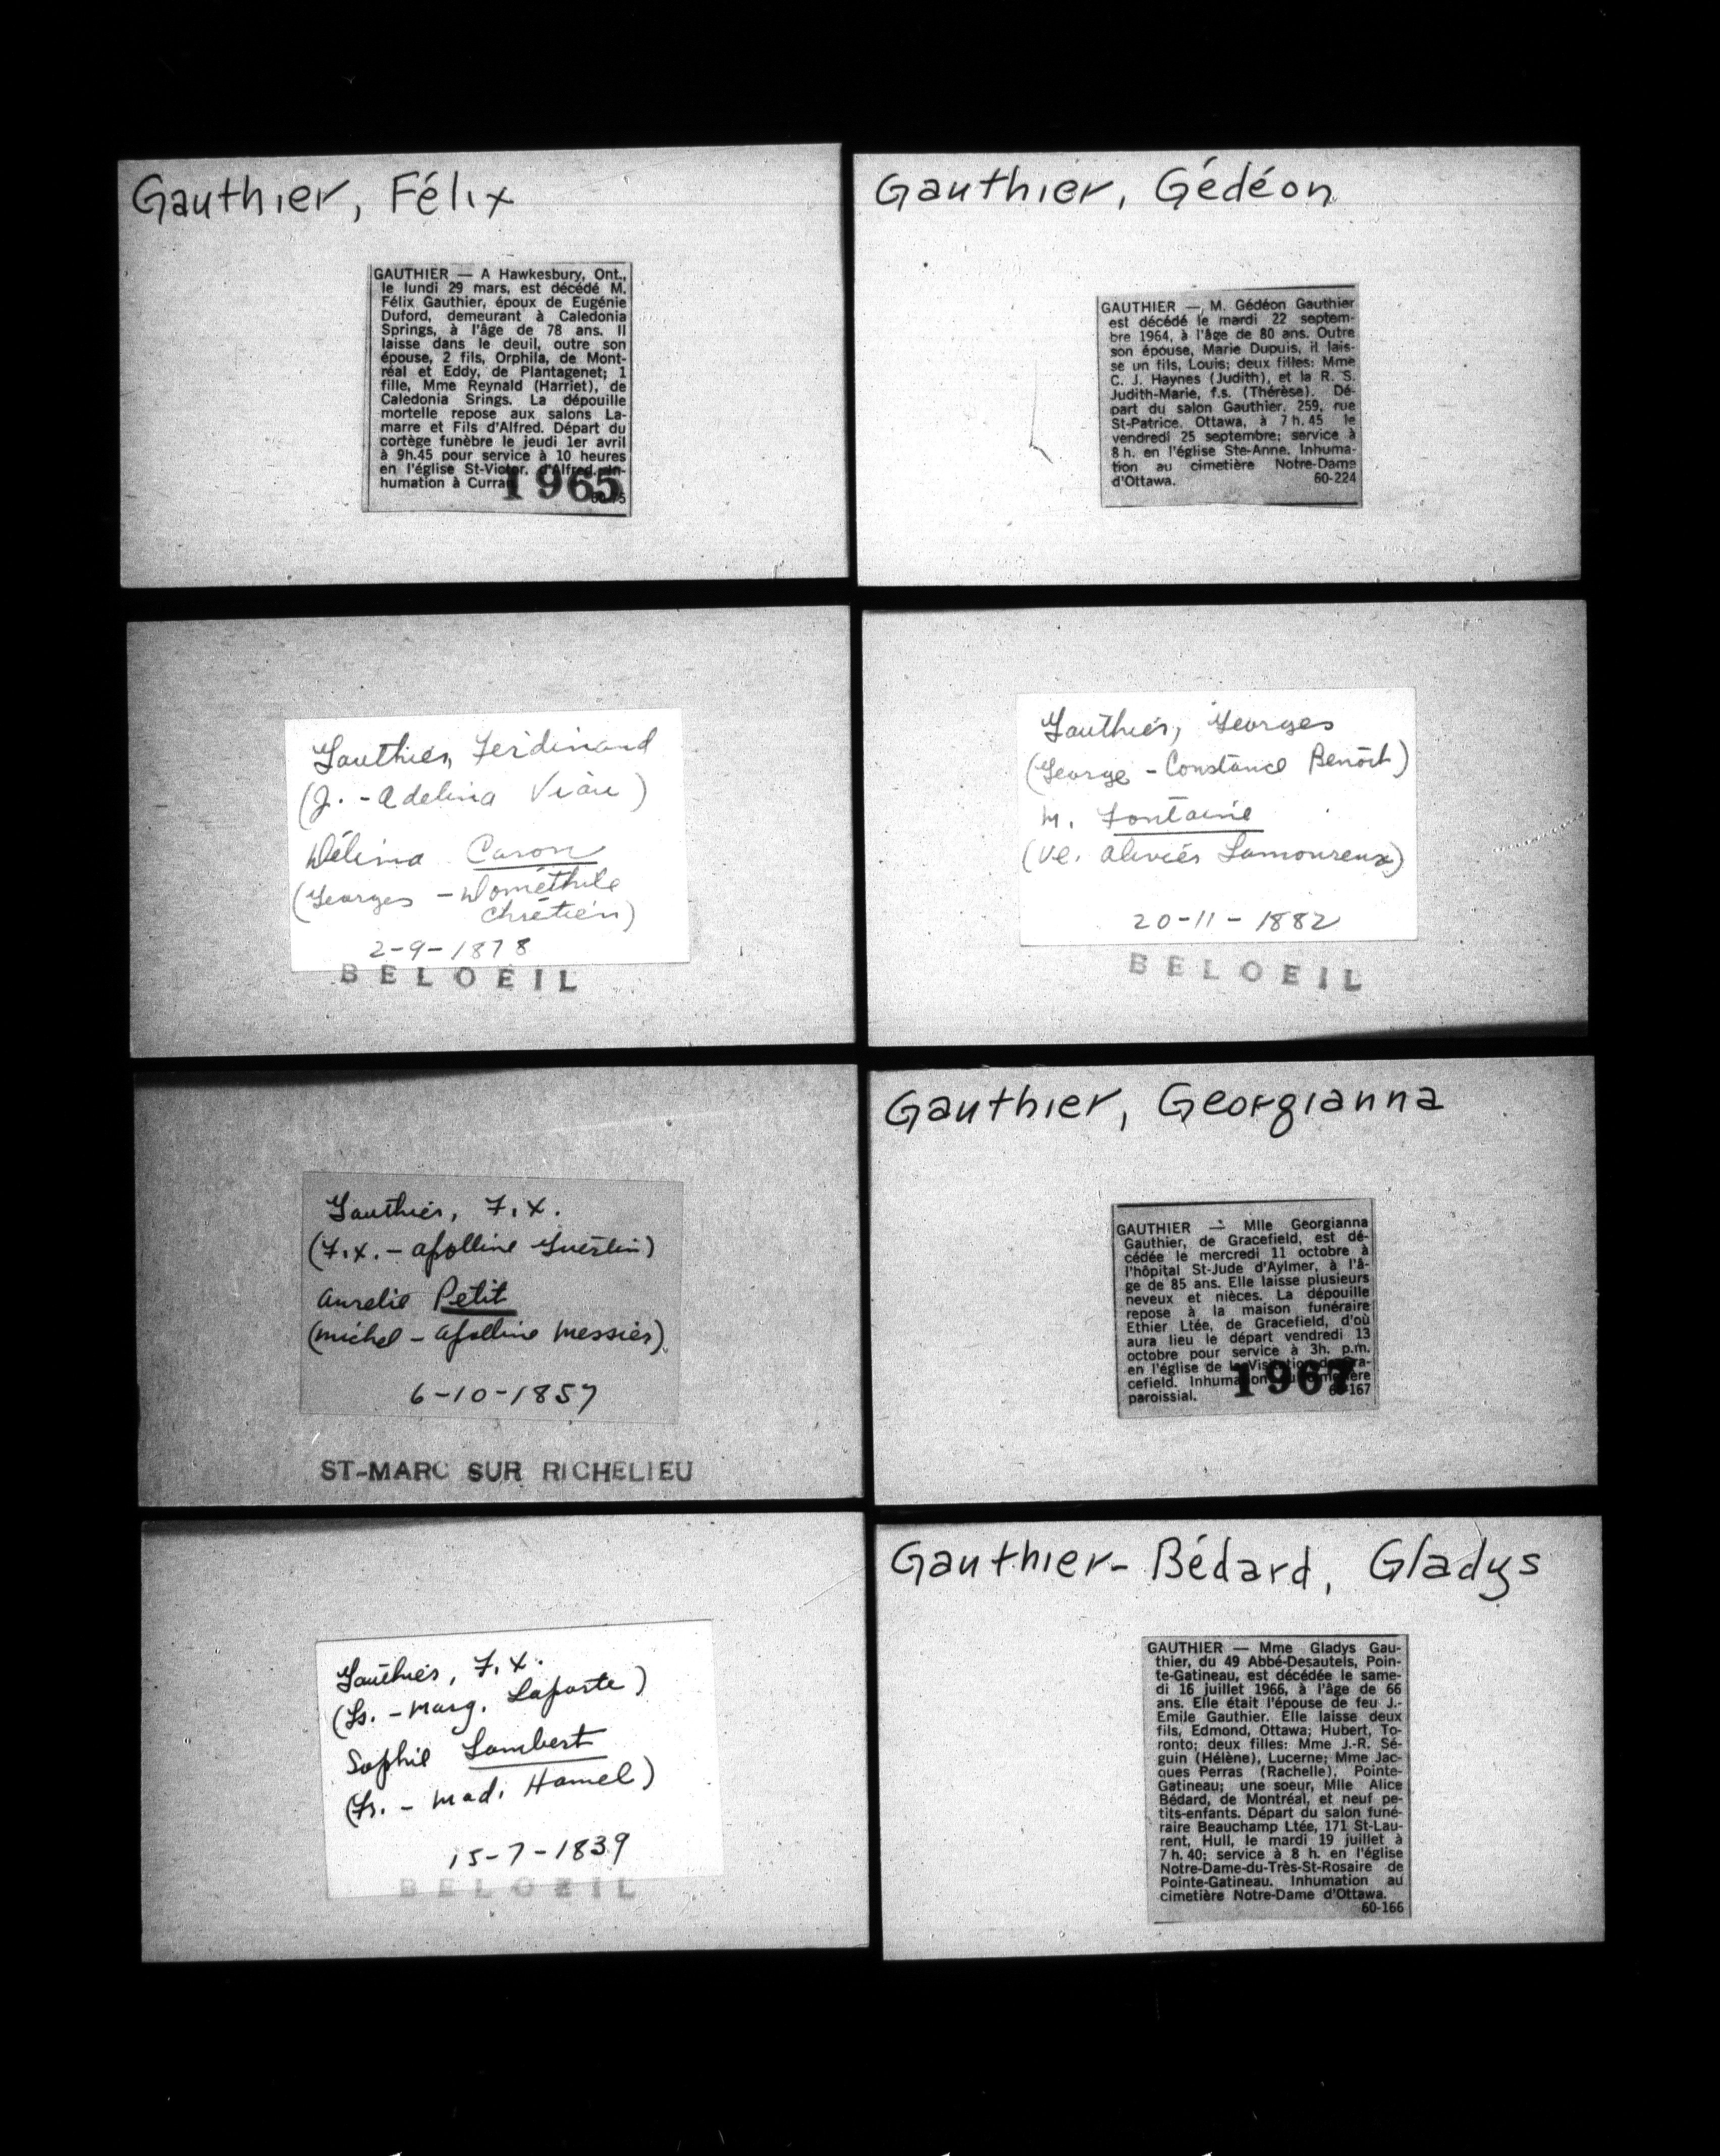 Gauthier, Félix
GAUTHIER — A Hawkesbury, Ont.,
le lundi 29 mars, est décédé M.
Félix Gauthier, époux de Eugénie
Duford, demeurant à Caledonia
Springs, à l'âge de 78 ans. Il
laisse dans le deuil, outre son
épouse, 2 fils, Orphila, de Mont-
réal et Eddy, de Plantagenet; 1
fille, Mme Reynald (Harriet), de
Caledonia Srings. La dépouille
mortelle repose aux salons La-
marre et Fils d'Alfred. Départ du
cortège funèbre le jeudi 1er avril
à 9h.45 pour service à 10 heures
en l'église St-Victor, d'Alfred. In-
humation à Curran
1965
Gauthier, Gédéon
GAUTHIER — M. Gédéon Gauthier
est décédé le mardi 22 septem-
bre 1964, à l'âge de 80 ans. Outre
son épouse, Marie Dupuis, il lais-
se un fils, Louis; deux filles: Mme
C. J. Haynes (Judith), et la R. S.
Judith-Marie, f.s. (Thérèse). Dé-
part du salon Gauthier, 259, rue
St-Patrice, Ottawa, à 7 h. 45 le
vendredi 25 septembre; service à
8 h. en l'église Ste-Anne. Inhuma-
tion au cimetière Notre-Dame
d'Ottawa. 60-224
Gauthier, Ferdinand
(J. - Adelina Viau)
Délima Caron
(Georges - Dométhile
Chrétien)
2-9-1878
BELOEIL
Gauthier, Georges
(George - Constance Benoit)
M. Fontaine
(Ve. Lamoureux)
20-11-1882
BELOEIL
Gauthier, F.X.
(F.X. - Apolline Guertin)
Aurelie Petit
(Michel - Apolline Messier)
6-10-1857
ST-MARC SUR RICHELIEU
Gauthier, Georgianna
GAUTHIER — Mlle Georgianna
Gauthier, de Gracefield, est dé-
cédée le mercredi 11 octobre à
l'hôpital St-Jude d'Aylmer, à l'â-
ge de 85 ans. Elle laisse plusieurs
neveux et nièces. La dépouille
repose à la maison funéraire
Ethier Ltée, de Gracefield, d'où
aura lieu le départ vendredi 13
octobre pour service à 3h. p.m.
en l'église de la Visitation de Gra-
cefield. Inhumation au cimetière
paroissial.
1967
Gauthier, F.X.
(Ls. - Marg. Laporte)
Sophie Lambert
(Fr. - Mad. Hamel)
15-7-1839
BELOEIL
Gauthier-Bédard, Gladys
GAUTHIER — Mme Gladys Gau-
thier, du 49 Abbé-Desautels, Poin-
te-Gatineau, est décédée le same-
di 16 juillet 1966, à l'âge de 66
ans. Elle était l'épouse de feu J.-
Emile Gauthier. Elle laisse deux
fils, Edmond, Ottawa; Hubert, To-
ronto; deux filles: Mme J.-R. Sé-
guin (Hélène), Lucerne; Mme Jac-
ques Perras (Rachelle), Pointe-
Gatineau; une soeur, Mlle Alice
Bédard, de Montréal, et neuf pe-
tits-enfants. Départ du salon funé-
raire Beauchamp Ltée, 171 St-Lau-
rent, Hull, le mardi 19 juillet à
7 h. 40; service à 8 h. en l'église
Notre-Dame-du-Très-St-Rosaire de
Pointe-Gatineau. Inhumation au
cimetière Notre-Dame d'Ottawa.
60-166